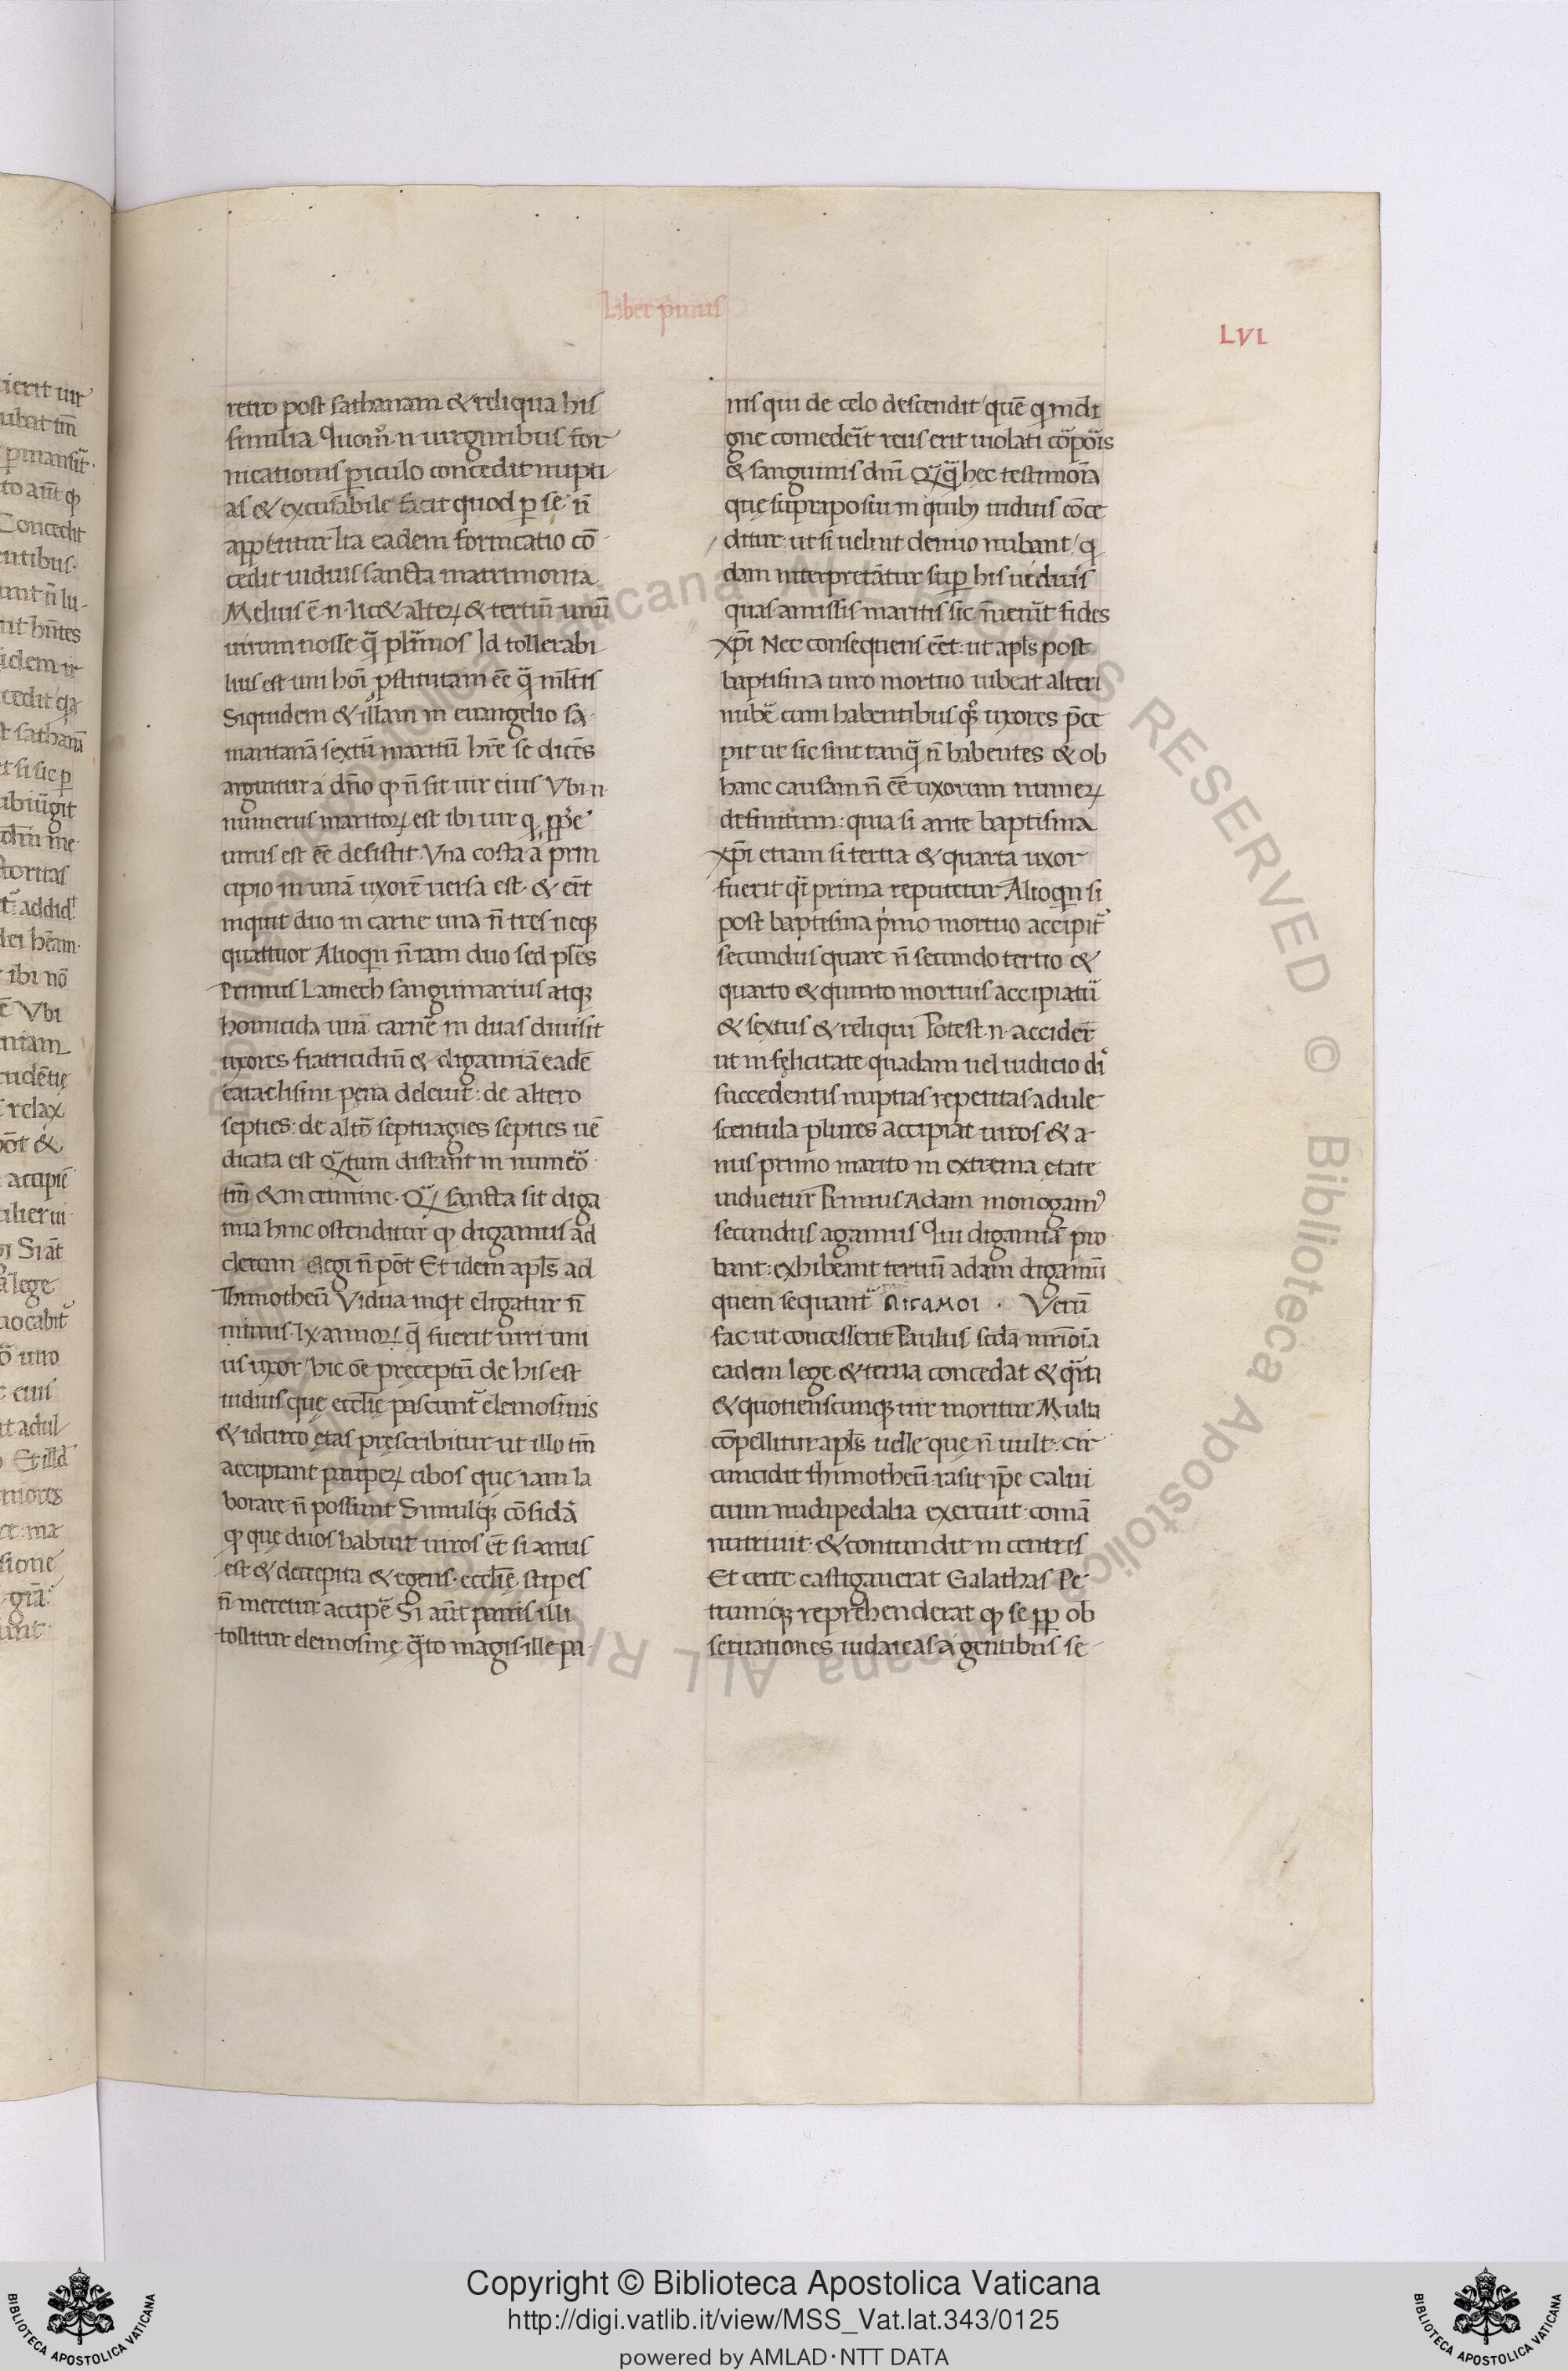 Liber p̄imus
LVI
retro post sathanam & reliqua his
similia. Quom̊ .n. uirginibus for
nicationis ꝑiculo concedit nupti
as & excusabile facit quod ꝑ se n̄
appetitur Ita eadem fornicatio cō
cedit uiduis sancta matrimonia
Melius ē .n. lic& alterꝝ & tertiū unū
uirum nosse q̄ plīmos Id tollerabi
lius est uni hoī pstitutam eē q̄ ml̄tis
Siquidem & illam in euangelio sa
maritanā sextū maritū hr̄e se dicēs
arguitur a dn̄o ꝙ n̄ sit uir eius Vbi .n.
numerus maritorꝝ est ibi uir q
unus est eē desistit. Vna costa a prin
cipio in unā uxorē uersa est. & er̄t
inquit duo in carne una n̄ tres neqꝫ
quattuor Alioqn n̄ iam duo sed ps̄es
Primus Lamech sanguinarius atqꝫ
homicida unā carnē in duas diuisit
uxores fratricidiū & digamiā eadē
cataclismi pęna deleuit: de altero
septies: de altō septuagies septies uē
dicata est Q̄tum distant in numēo
tm̄ & in crimine. Q̄ sancta sit diga
mia hinc ostenditur ꝙ digamus ad
clerum elegi n̄ pōt Et idem apl̄s ad
Thimotheū Vidua inqt eligatur n̄
minus. lx annorꝝ q̄ fuerit uiri uni
us uxor hic oē pręceptū de his est
uiduis quę eccl̄ię pascunt̄ elemosinis
& idcirco ętas pręscribitur ut illo tm̄
accipiant pauperꝝ cibos quę iam la
borare n̄ possunt Simulqꝫ cōsidā
ꝙ quę duos habuit uiros et̄ si anus
est & decrepita & egens. eccl̄ię stipes
n̄ meretur accipē Si aūt panis illi
tollitur elemosinę q̄to magis ille pa
nis qui de celo descendit quē q indi
gne comedeīt reus erit uiolati cōpōis
& sanguinis dn̄i Qq̄ hec testimoīa
quę supraposui in quibꝫ uiduis cōce
ditur ut si uelint denuo nubant q
dam interpretātur suꝑ his uiduis
quas amissis maritis sic īuenīt fides
xp̄i Nec consequens eēt: ut apl̄s post
baptisma uiro mortuo iubeat alteri
nubē cum habentibus qꝫ uxores p̄ce
pit ut sic sint tanq̄ n̄ habentes & ob
hanc causam n̄ eē uxorum numerꝝ
definitum: quia si ante baptisma
xp̄i etiam si tertia & quarta uxor
fuerit q̄i prima reputetur Alioqn si
post baptisma pmo mortuo accipit̄
secundus quare n̄ secundo tertio &
quarto & quinto mortuis accipiatū
& sextus & reliqui Potest .n. accidēt
ut in fęlicitate quadam uel iudicio di
succedentis nuptias repetitas adule
scentula plures accipiat uiros & a
nus primo marito in extrema ętate
uiduetur Primus Adam monogamꝰ
secundus agamus Qui digamiā pro
bant: exhibeant tertiū adam digamū
quem sequant̄ ΔΙΓΑΜΟΙ . Verū
fac ut concesserit Paulus scd̄a mr̄ioīa
eadem lege & terna concedat & q̄rta
& quotienscunqꝫ uir moritur Multa
cōpellitur apl̄s uelle quę n̄ uult: cir
cuncidit thimotheū rasit ip̄e calui
cium nudipedalia exercuit comā
nutriuit. & contundit in centris
Et certe castigauerat Galathas Pe
trumqꝫ reprehenderat ꝙ se ꝓp ob
seruationes iudaicas a gentibus se
Copyright © Biblioteca Apostolica Vaticana
http://digi.vatlib.it/view/MSS_Vat.lat.343/0125
powered by AMLAD·NTT DATA